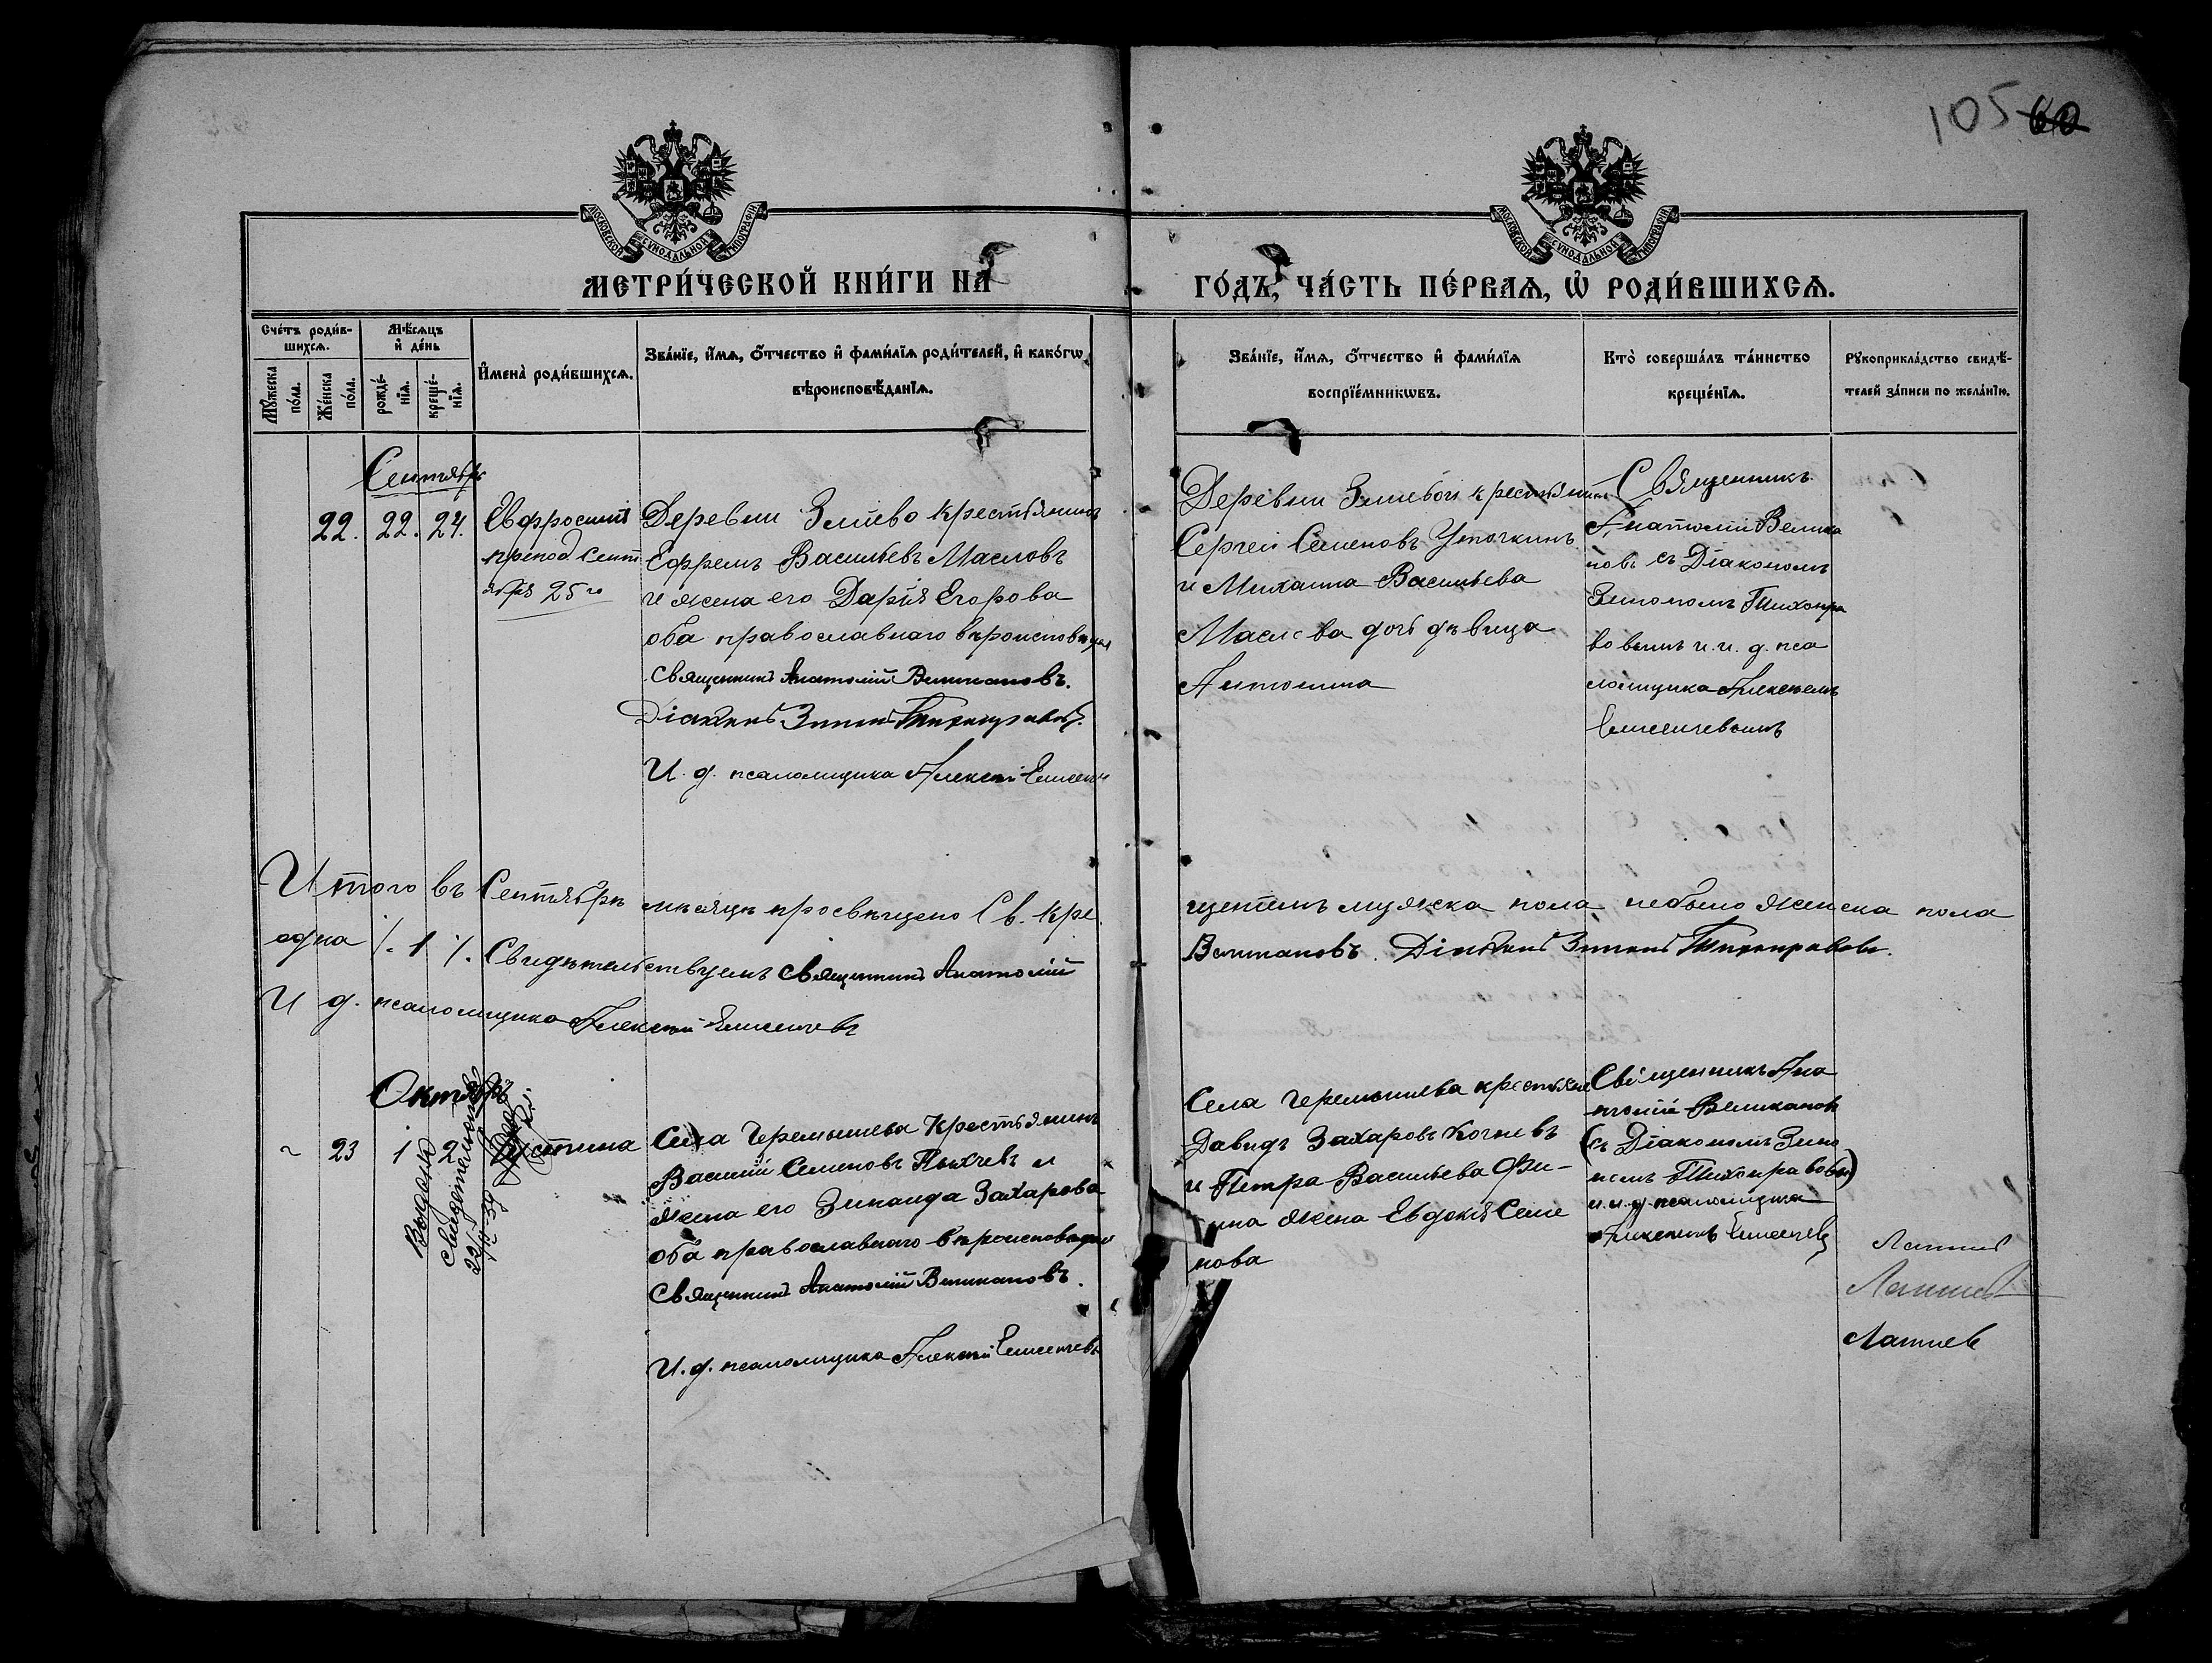 105 60
МОСКОВСКОЙ СѴНОДАЛЬНОЙ ТИПОГРАФІИ
МОСКОВСКОЙ СѴНОДАЛЬНОЙ ТИПОГРАФІИ
МЕТРИ́ЧЕСКОЙ КНИ́ГИ НА
ГО́ДЪ, ЧА́СТЬ ПЕ́РВАѦ, Ѡ РОДИ́ВШИХСѦ.
Сче́тъ роди́в-
шихсѧ.
Мꙋ́жеска
по́ла.
Же́нска
по́ла.
Мѣ́сѧцъ
и҆ де́нь
рожде́-
нїѧ.
креще́-
нїѧ.
И҆мена̀ роди́вшихсѧ.
Зва́нїе, и҆́мѧ, ѻ҆́тчество и҆ фами́лїѧ роди́телей, и҆ како́гѡ
вѣроисповѣ́данїѧ.
Зва́нїе, и҆́мѧ, ѻ҆́тчество и҆ фами́лїѧ
воспрїе́мникѡвъ.
Кто̀ соверша́лъ та́инство
креще́нїѧ.
Рꙋкоприкла́дство свидѣ́-
телей за́писи по жела́нїю.
Сентябрь
22. 22. 24.
Евфросинія
препод. Сент
ября 25го
Деревни Змѣево крестьянинъ
Ефремъ Васильевъ Масловъ
и жена его Дарія Егорова
оба православнаго вѣроисповѣдан
Священникъ Анатолій Великановъ.
Діаконъ Зинонъ Тихонравовъ.
И. д. псаломщика Алексѣй Елисеев
Деревни Змѣевой крестьянинъ
Сергей Семеновъ Уточкинъ
и Михаила Васильева
Маслова дочь дѣвица
Антонина
Священникъ
Анатолій Велика
новъ съ Діакономъ
Зинономъ Тихонра
вовымъ и и. д. пса
ломщика Алексѣемъ
Елисеичевымъ
Итого въ Сентябрѣ мѣсяцѣ просвѣщено Св. Кре
щеніемъ мужска пола небыло женска пола
одна /. 1 /. Свидѣтельствуемъ Священникъ Анатолій
Великановъ. Діаконъ Зинонъ Тихонравовъ.
И д. псаломщика Алексѣй Елисеичевъ
Октябрь
23 1 2
Выдано
свидетельство
Устина
Села Черемышева Крестьянинъ
Василій Семеновъ Пыхчевъ и
жена его Зинаида Захарова
оба православнаго вѣроисповѣдан
Священникъ Анатолій Великановъ.
И. д. псаломщика Алексѣй Елисеичевъ
Села Черемышева крестьян
Давидъ Захаровъ Кочневъ
и Петра Васильева Фи-
лина жена Евдокія Семе
нова
Священникъ Ана
толій Великановъ
(съ Діакономъ Зино
номъ Тихонравовым)
и и. д. псаломщика
Алексѣемъ Елисеичев
Лаптев
Лаптев
Лаптев